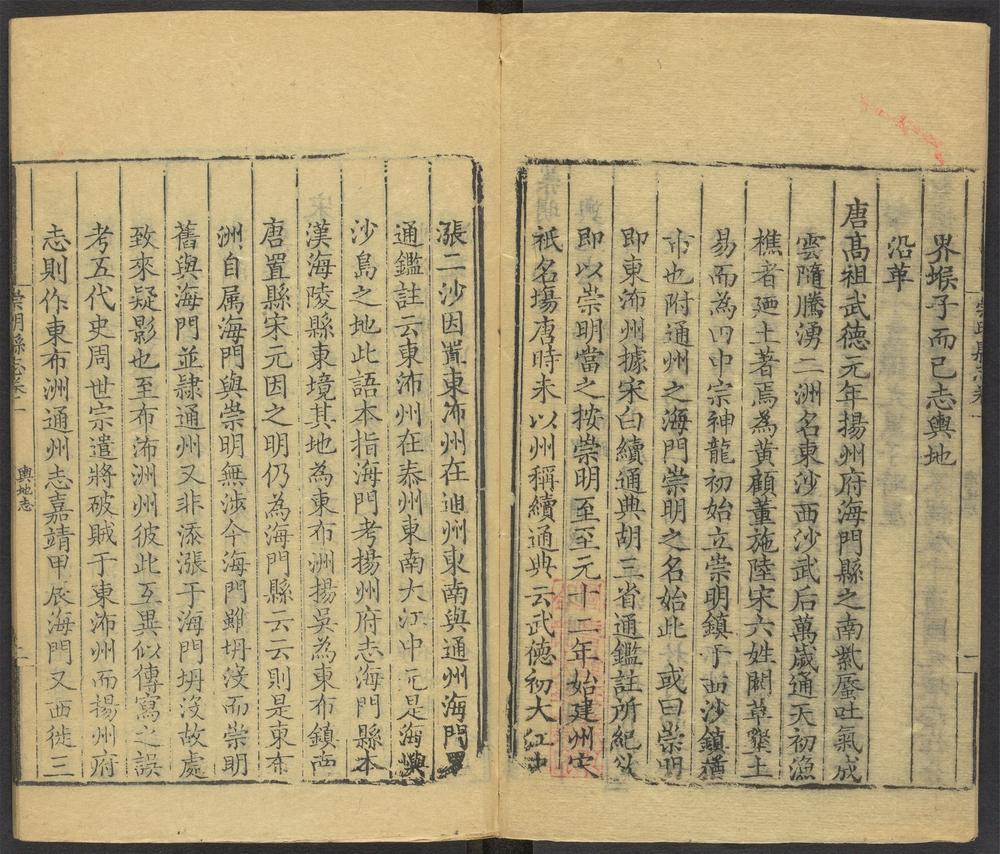 界堠子而已志輿地
沿革
唐高祖武德元年揚州府海門縣之南紫蜃吐氣成
雲隨騰湧二洲名東沙西沙武后萬歲通天初漁
樵者廼土著焉為黃顧董施陸宋六姓闢草墾土
易而為田中宗神龍初始立崇明鎮于西沙鎮猶
市也附通州之海門崇明之名始此 或曰崇明
即東沛州據宋白續通典胡三省通鑑註所紀以
即以崇明當之按崇明至至元十二年始建州宋
祇名塲唐時未以州稱續通典云武德初大江中
漲二沙因置東沛州在通州東南與通州海門
通鑑註云東沛州在泰州東南大江中元是海嶼
沙島之地此語本指海門考揚州府志海門縣本
漢海陵縣東境其地為東布洲揚吳為東布鎮西
唐置縣宋元因之明仍為海門縣云云則是東布
洲自属海門與崇明無涉今海門雖坍沒而崇明
舊與海門並隸通州又非添漲于海門坍沒故處
致來疑影也至布沛洲州彼此互異似傳寫之誤
考五代史周世宗遣將破賊于東沛州而揚州府
志則作東布洲通州志嘉靖甲辰海門又西徙三
崇明縣志卷一
輿地志